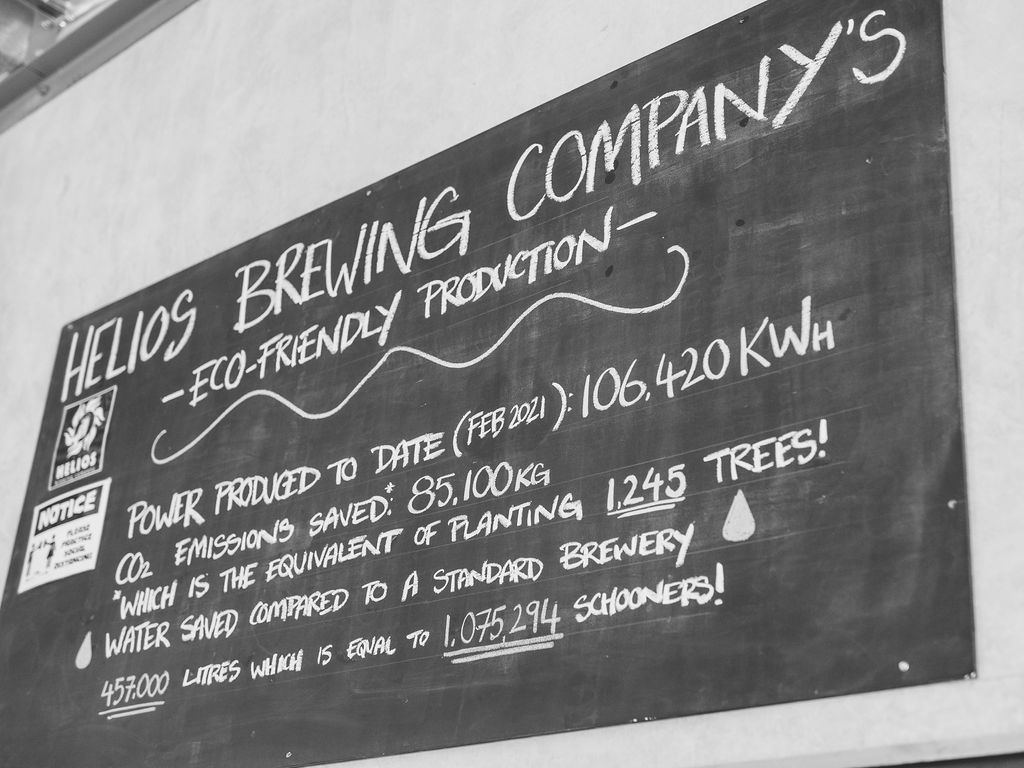 HELIOS BREWING COMPANY'S
-ECO-FRIENDLY PRODUCTION-
HELIOS
NOTICE
PLEASE
PRACTICE
SOCIAL
DISTANCING
POWER PRODUCED TO DATE (FEB 2021): 106,420 KWH
CO2 EMISSIONS SAVED:* 85,100KG
*WHICH IS THE EQUIVALENT OF PLANTING 1,245 TREES!
WATER SAVED COMPARED TO A STANDARD BREWERY
457,000 LITRES WHICH IS EQUAL TO 1,075,294 SCHOONERS!